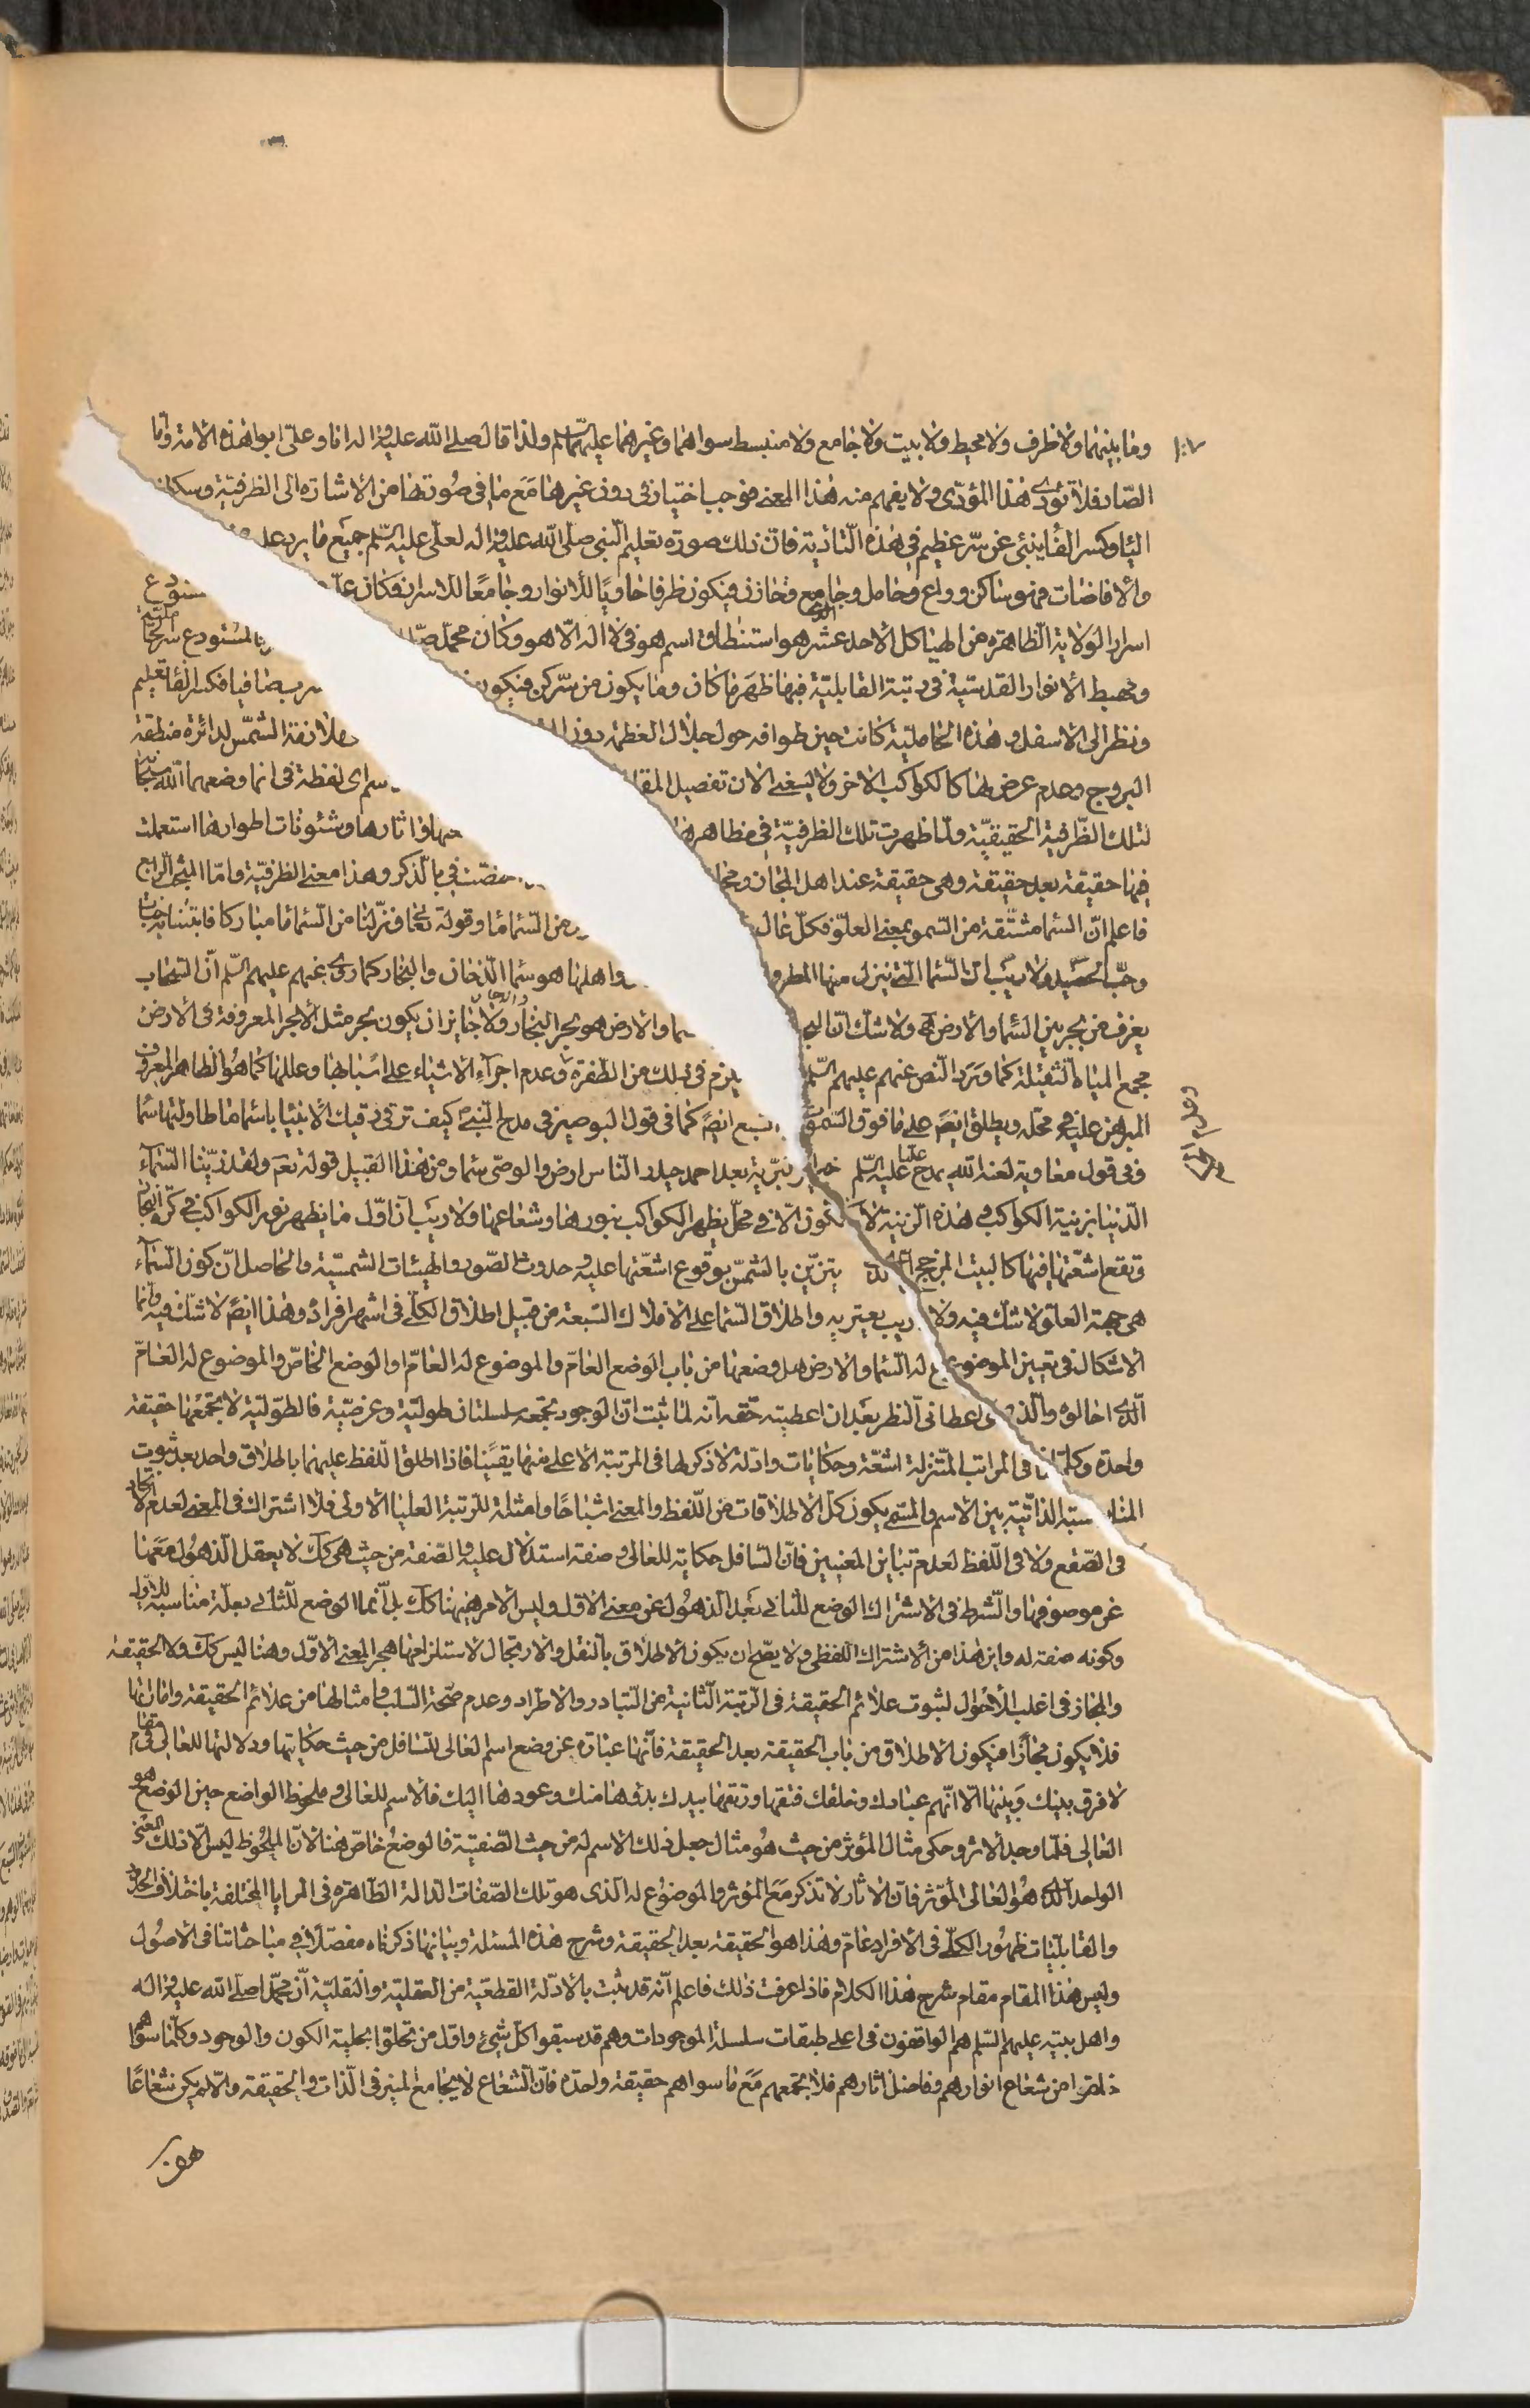 وما بينهما ولا ظرف ولا محيط ولا بيت ولا جامع ولا منبسط سواهما وغيرهما عليهما السلم ولذا قال صلى الله عليه واله انا وعلي ابوا هذه الامة واما
الصاد فلا تؤدى هذا المؤدى ولا يفهم منه هذا المعنى فوجب اختيار في دون غيرها مع ما في صورتها من الاشارة الى الظرفية وسكون
الياء وكسر الفاء ينبئ عن سر عظيم في هذه التأدية فان ذلك صورة تعليم النبي صلى الله عليه واله لعلي عليه السلم جميع ما يرد عليه
والافاضات فهو ساكن وواع وحامل وجامع وخازن فيكون ظرفا حاويا للانوار وجامعا للاسرار فكان
اسرار الولاية الظاهرة من الهياكل الاحد عشر هو استنطاق اسم هو في لا اله الا هو وكان محمد المستودع
ومهبط الانوار القدسية في رتبة القابلية فبها ظهر ما كان وما يكون من سر كن فيكون فكسر الفاء تعليم
ونظر الى الاسفل وهذه الحاملية كانت حين طوافه حول جلال العظمة دون ملازمة الشمس لدائرة منطقة
البروج وعدم عرض لها كالكواكب الاخر ولا يسعني الان تفصيل لفظة في انما وضعهما الله
لتلك الظرفية الحقيقية ولما ظهرت تلك الظرفية في مظاهر واثارها وشئونات اطوارها استعملت
فيها حقيقة بعد حقيقة وهي حقيقة عند اهل المجاز في بالذكر وهذا معنى الظرفية واما المبحث الرابع
فاعلم ان السماء مشتقة من السمو بمعنى العلو فكل عال من السماء ماء وقوله تعالى ونزلنا من السماء ماء مباركا فانبتنا به جنات
وحب الحصيد ولا ريب ان السماء التي ينزل منها المطر واهلها هو سماء الدخان والبخار كما روي عنهم عليهم السلم ان السحاب
يغرف من بحر بين السماء والارض ولا شك ان والارض هو بحر البخار ولا جايز ان يكون بحر مثل الابحر المعروفة في الارض
مجمع المياه الثقيلة كما ويرد النص عنهم عليهم السلم يلزم في ذلك من الطفرة وعدم اجراء الاشياء على اسبابها وعللها كما هو الظاهر المعروف
المبرهن عليه في محله ويطلق ايضا على ما فوق ايضا كما في قول البوصيري في مدح النبي كيف ترقى رقيك الانبياء يا سماء ما طاولتها سماء
وفي قول معاوية لعنه الله يمدح عليا عليه السلم خير البرية بعد احمد حيدر الناس ارض والوصي سماء ومن هذا القبيل قوله تعالى ولقد زينا السماء
الدنيا بزينة الكواكب هذه الزينة لا تكون الا في محل يظهر الكواكب بنورها وشعاعها ولا ريب ان اول ما يظهر نور الكواكب في كرة البخار
وتقع اشعتها فيها كالبيت يتزين بالشمس بوقوع اشعتها عليه وحدوث الصور والهيئات الشمسية والحاصل ان كون السماء
هي جهة العلو لا شك فيه ولا ريب يعتريه واطلاق السماء على الافلاك السبعة من قبيل اطلاق الكلي في اشهر افراده وهذا ايضا لا شك فيه وانما
الاشكال في تعيين الموضوع له السماء والارض هل وضعها من باب الوضع العام والموضوع له العام او الوضع الخاص والموضوع له العام
الذي اخالوه والذي اعطاني النظر بعد ان اعطيته حقه انه لما ثبت ان الوجود تجمعه سلسلتان طولية وعرضية فالطولية لا تجمعها حقيقة
واحدة وكلما في المراتب المتنزلة اشعة وحكايات وادلة لا ذكر لها في المرتبة الاعلى منها يقينا فاذا اطلق اللفظ عليهما باطلاق واحد بعد ثبوت
المناسبة الذاتية بين الاسم والمسمى يكون كل الاطلاقات من اللفظ والمعنى اشباحا وامثلة للرتبة العليا الاولى فلا اشتراك في المعنى لعدم الاتحاد
في الصقع ولا في اللفظ لعدم تباين المعنيين فان السافل حكاية للعالي وصفة استدلال عليه والصفة من حيث هي كك لا يعقل الذهول معها
عن موصوفها والشرط في الاشتراك الوضع للثاني بعد الذهول عن معنى الاول وليس الامر هيهنا كك بل انما الوضع للثاني بعلة مناسبة للاول
وكونه صفة له واين هذا من الاشتراك اللفظي ولا يصح ان يكون الاطلاق بالنقل والارتجال لاستلزامها هجر المعنى الاول وهنا ليس كك ولا الحقيقة
والمجاز في اغلب الاحوال لثبوت علائم الحقيقة في الرتبة الثانية من التبادر والاطراد وعدم صحة السلب وامثالها من علائم الحقيقة واماراتها
فلا يكون مجازا فيكون الاطلاق من باب الحقيقة بعد الحقيقة فانها عبارة عن وضع اسم العالي للسافل من حيث حكايتها ودلالتها للعالي في مقام
لا فرق بينك وبينها الا انهم عبادك وخلقك فتقها ورتقها بيدك بدؤها منك وعودها اليك فالاسم للعالي وملحوظ الواضع حين الوضع هو
العالي فلما وجد الاثر وحكى مثال المؤثر من حيث هو مثال جعل ذلك الاسم له من حيث الصفتية فالوضع خاص هنا لان الملحوظ ليس الا ذلك المعنى
الواحد الذي هو العالي المؤثر فان الاثار لا تذكر مع المؤثر والموضوع له الذي هو تلك الصفات الدالة الظاهرة في المرايا المختلفة باختلاف
والقابليات ظهور الكلي في الافراد عام وهذا هو الحقيقة بعد الحقيقة وشرح هذه المسئلة وبيانها ذكرناه مفصلا في مباحثاتنا في الاصول
وليس هذا المقام مقام شرح هذا الكلام فاذا عرفت ذلك فاعلم انه قد ثبت بالادلة القطعية من العقلية والنقلية ان محمدا صلى الله عليه واله
واهل بيته عليهم السلم هم الواقفون في اعلى طبقات سلسلة الموجودات وهم قد سبقوا كل شيئ واول من تحلق بحلية الكون والوجود وكلما سواهم
من شعاع انوارهم وفاضل اثارهم فلا تجمعهم مع ما سواهم حقيقة واحدة فان الشعاع لا يجامع المنير في الذات والحقيقة والا لم يكن شعاعا